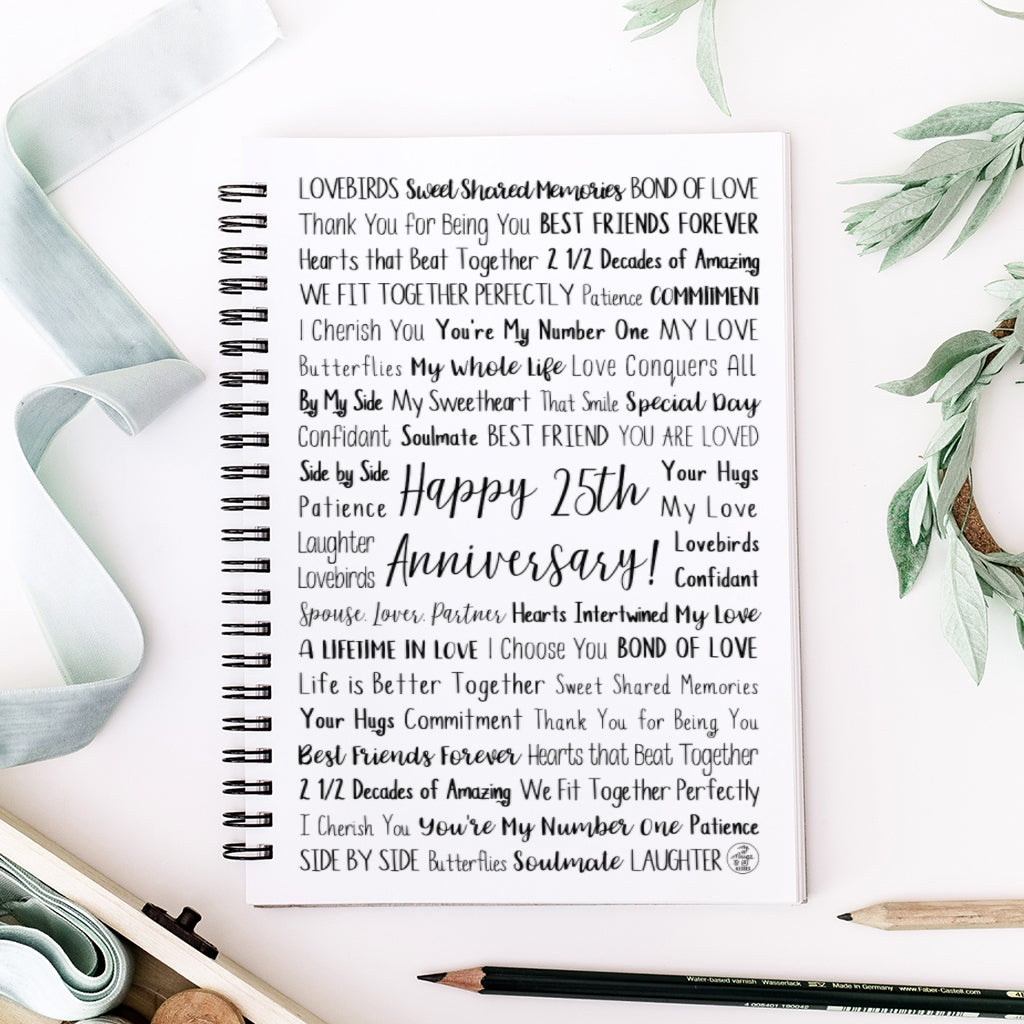 LOVEBIRDS Sweet Shared Memories BOND OF LOVE
Thank You for Being You BEST FRIENDS FOREVER
Hearts that Beat Together 2 1/2 Decades of Amazing
WE FIT TOGETHER PERFECTLY Patience COMMITMENT
I Cherish You You're My Number One MY LOVE
Butterflies My Whole Life Love Conquers All
By My Side My Sweetheart That Smile Special Day
Confidant Soulmate BEST FRIEND YOU ARE LOVED
Side by Side
Patience
Happy 25th
Your Hugs
My Love
Laughter
Lovebirds
Anniversary!
Lovebirds
Confidant
Spouse. Lover. Partner Hearts Intertwined My Love
A LIFETIME IN LOVE I Choose You BOND OF LOVE
Life is Better Together Sweet Shared Memories
Your Hugs Commitment Thank You for Being You
Best Friends Forever Hearts that Beat Together
2 1/2 Decades of Amazing We Fit Together Perfectly
I Cherish You You're My Number One Patience
SIDE BY SIDE Butterflies Soulmate LAUGHTER
Water-based varnish Wasserlack SV Made in Germany www.Faber-Castell.com
4 005401 190042